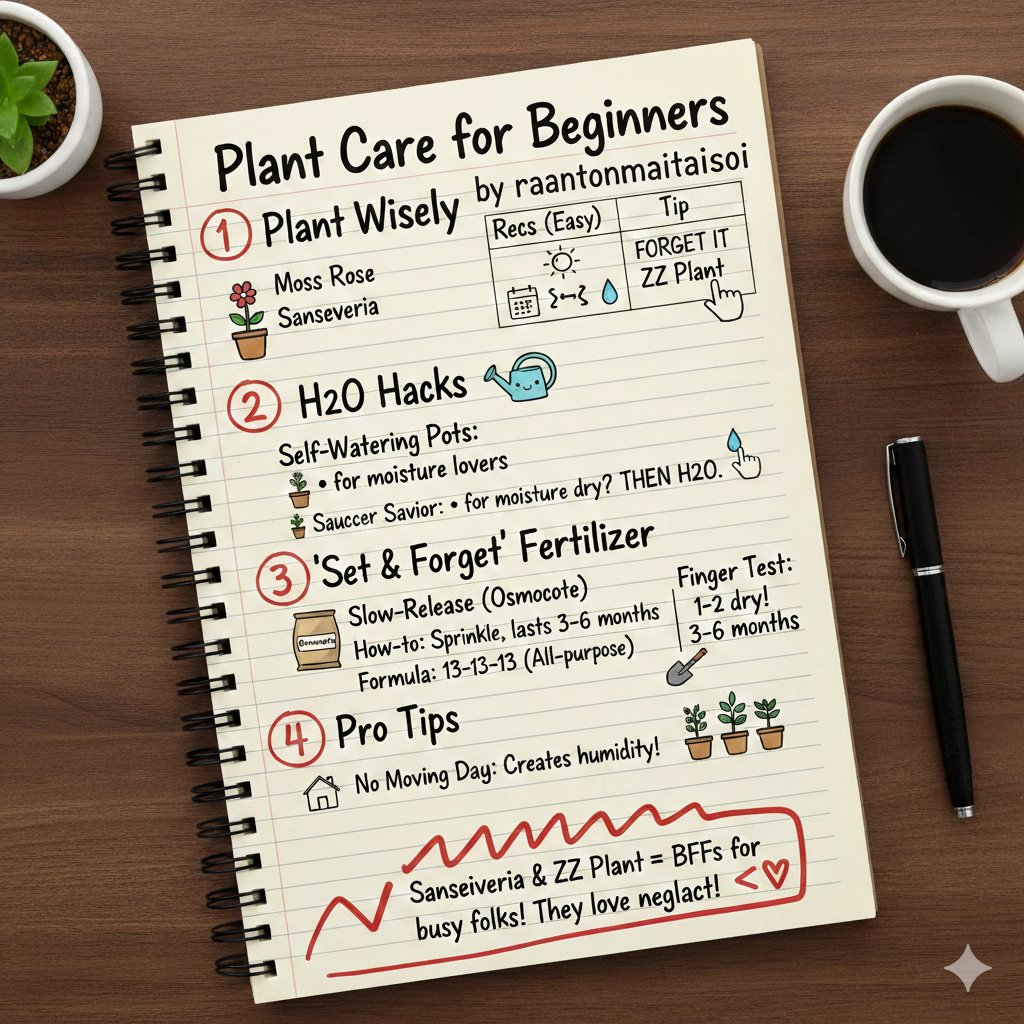 Plant Care for Beginners
by raantonmaitaisoi
1 Plant Wisely
Moss Rose
Sanseveria
Recs (Easy) Tip
FORGET IT
ZZ Plant
2 H2O Hacks
Self-Watering Pots:
• for moisture lovers
Sauccer Savior: • for moisture dry? THEN H2O.
3 'Set & Forget' Fertilizer
Slow-Release (Osmocote)
How-to: Sprinkle, lasts 3-6 months
Formula: 13-13-13 (All-purpose)
Finger Test:
1-2 dry!
3-6 months
4 Pro Tips
No Moving Day: Creates humidity!
Sanseiveria & ZZ Plant = BFFs for
busy folks! They love neglact! <